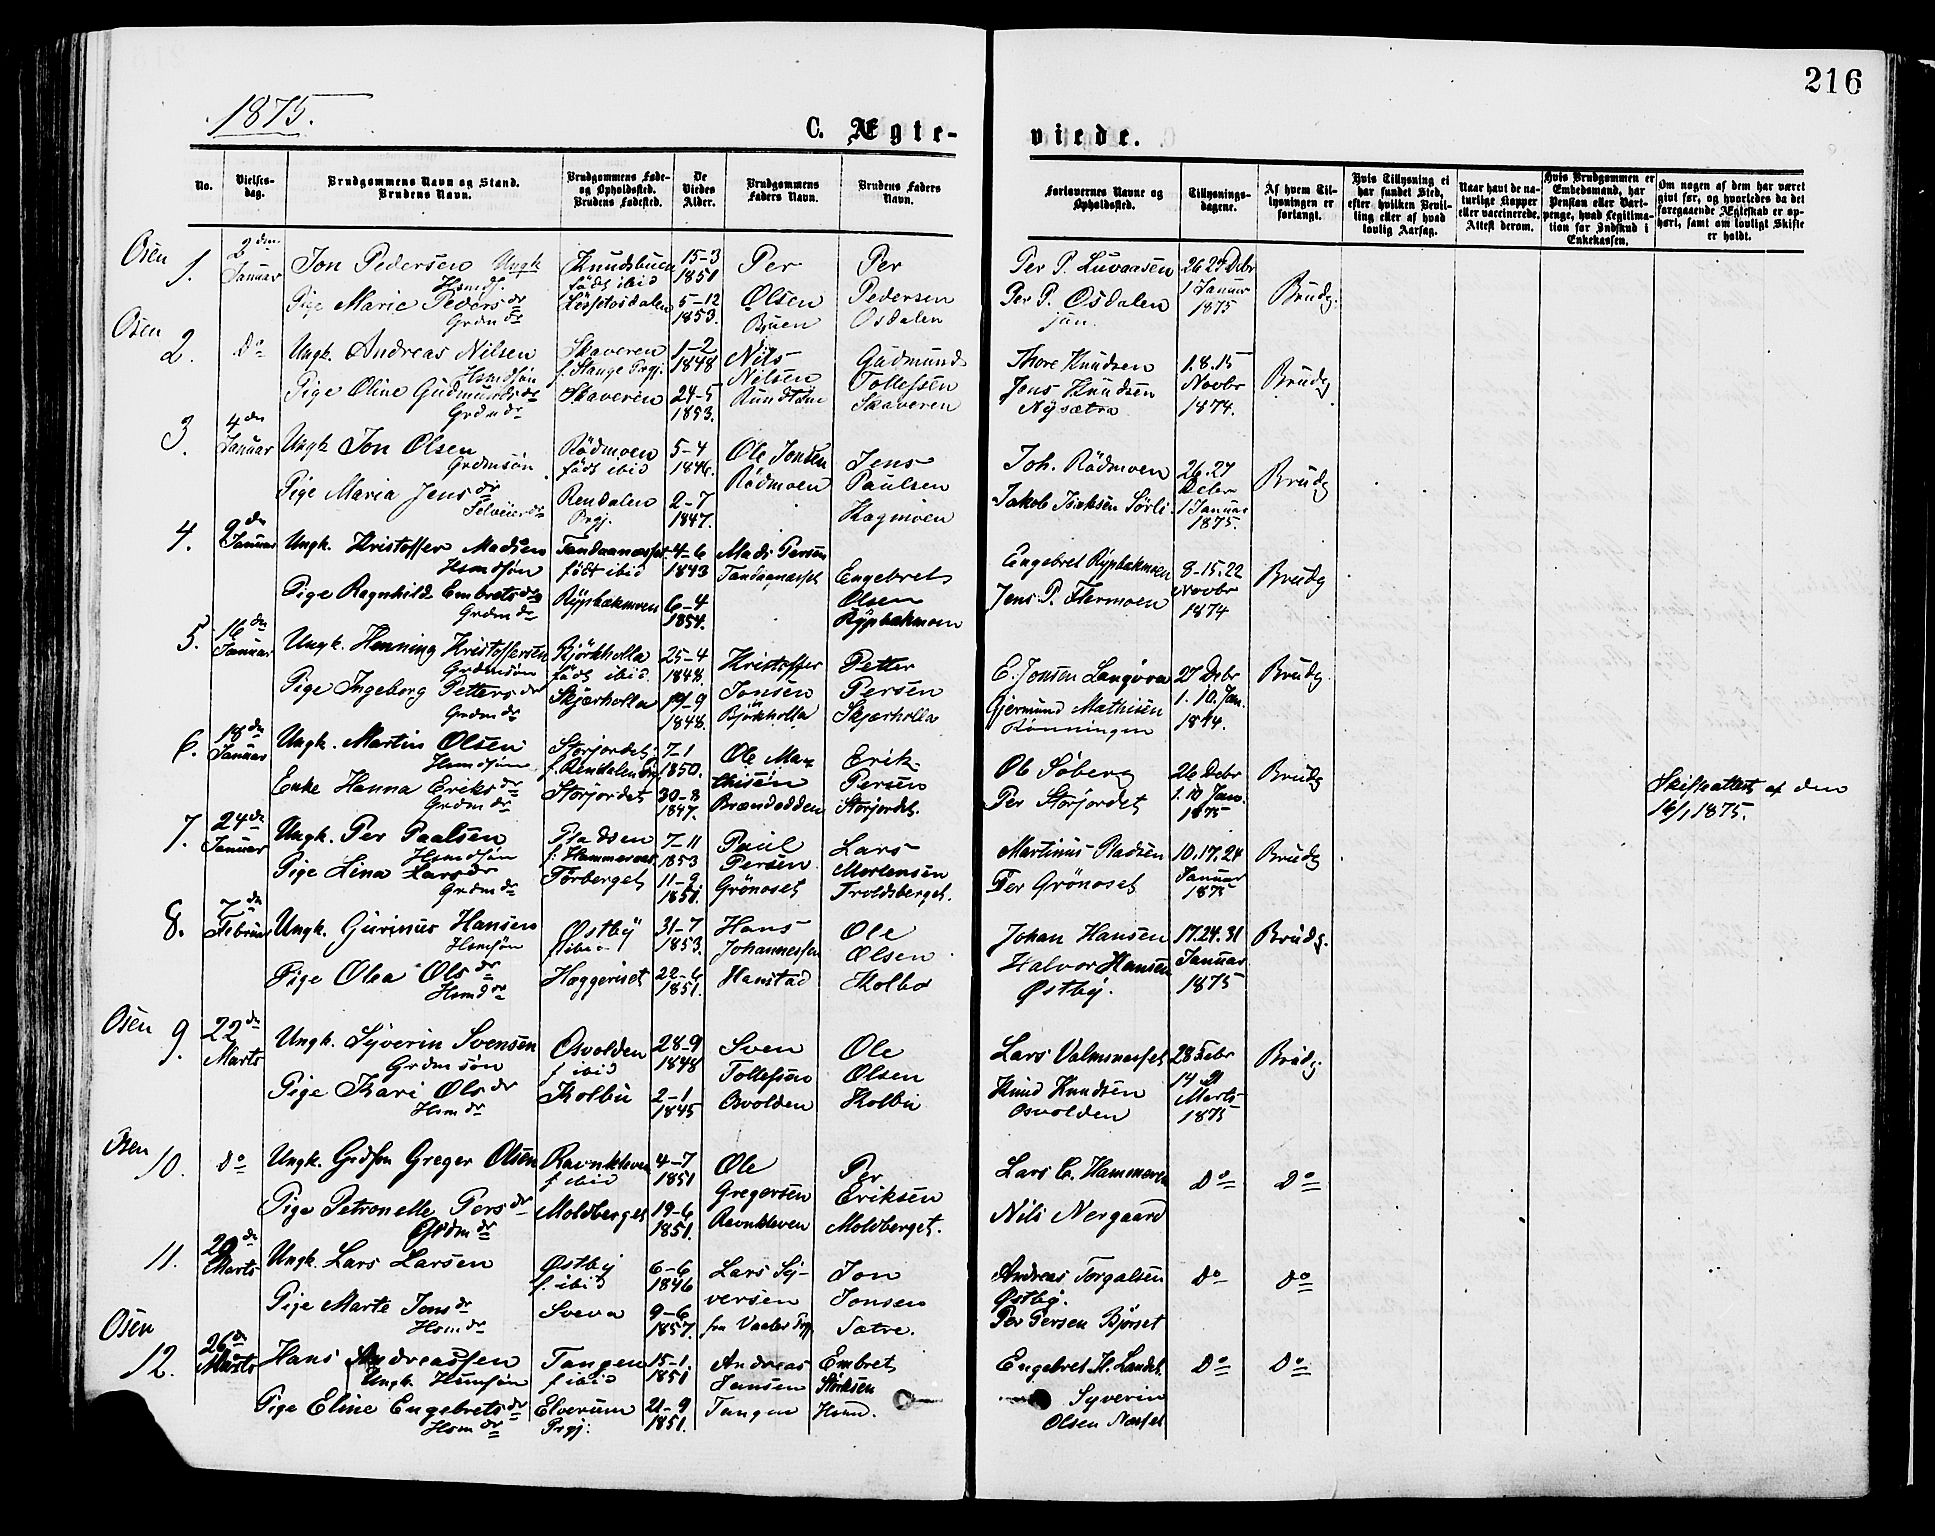 216
1875.
C. Ægte-viede.
No.
Vielses-dag.
Brudgommens Navn og Stand.
Brudens Navn.
Brudgommens Føde- og Opholdssted.
Brudens Fødested.
De Viedes Alder.
Brudgommens Faders Navn.
Brudens Faders Navn.
Forlovernes Navne og Opholdssted.
Tillysnings-dagene.
Af hvem Tillysningen er forlangt.
Hvis Tillysning ei har fundet Sted, efter hvilken Bevilling eller af hvad lovlig Aarsag.
Naar havt de naturlige Kopper eller vaccinerede. Attest derom.
Hvis Brudgommen er Embedsmand, har Pension eller Vartpenge, hvad Legitimation for Indskud i Enkekassen.
Om nogen af dem har været givt før, og hvorledes da det foregaaende Ægteskab er ophørt, samt om lovligt Skifte er holdt.
Osen 1. 2den Januar
Jon Pedersen Ungk. Hsmds.
Pige Marie Pedersdr Grdmdr
Knudsbuen født ibid
15-3 1851
5-12 1853.
Per Olsen Buen
Per Pedersen Osdalen
Per P. Osdalen jun.
26 27 Debr 1 Januar 1875
Brudg.
Osen 2. Do
Ungk. Andreas Nilsen Hsmdsøn
Pige Oline Gudmundsdr Grdmdr
Skaveren f. Stange Prgj.
Skaveren
1-2 1848
24-5 1853.
Nils Nilsen
Gudmund Tollefsen Skaveren
Thore Knudsen
Jens Knudsen Nysætra
1.8.15 Novbr 1874.
Brudg
3. 4de Januar
Ungk Jon Olsen Grdmsøn
Pige Maria Jensdr
Rödmoen født ibid
Rendalen Prgj.
5-4 1846.
2-7 1847.
Ole Jonsen Rödmoen
Jens Paulsen Hagmoen
Joh. Rödmoen
Jakob Isaksen Sørli
26.27 Debr 1 Januar 1875.
Brudg
4. 9de Januar
Ungk. Kristoffer Madsen Hsmdsøn
Pige Ragnhild Embretsdr Grdmdr
født ibid
Rypbakmoen
4-6 1843
6-4 1854.
Mads Persen
Engebret Olsen Rypbakmoen
Engebret Rypbakmoen
Jens P. Flermoen
8-15.22 Novbr 1874
Brudg
5. 16de Januar
Ungk. Henning Kristoffersen Grdmsøn
Pige Ingeborg Pettersdr Grdmdr
Björkholla født ibid.
Skjærholla
25-4 1848.
19-9 1848.
Kristoffer Jonsen Björkholla
Petter Persen Skjærholla
E. Jonsen
Gjermund Mathisen Rønningen
27 Debr 1. 10. Jan.
Brudg.
6. 18de Januar
Ungk. Martin Olsen Hsmdsøn
Enke Hanna Eriksdr Grdmdr
Storjordet f. Rendalen
Storjordet
7-1 1850.
30-8 1847.
Ole Mathisen Brændodden
Erik Persen Storjordet.
Ole Søberg
Per Storjordet
26 Debr 1. 10 Jan. 1875
Brudg
Skifteattest af den 16/1 1875.
7. 24de Januar
Ungk. Per Paalsen Hsmdsøn
Pige Lina Larsdr Grdmdr
Pladsen
Torberget
7-11 1853
11-9 1851.
Paul Persen Grönoset
Lars Mortensen Troldsberget.
Martinus Pladsen
Per Grönoset
10.17.24 Januar 1875
Brudg
8. 7de Februar
Ungk. Gurinus Hansen Hsmsøn
Pige Olea Olsdr Hsmdr
Østby f ibid
Haggeriset
31-7 1853.
22-6 1851.
Hans Johannessen Hanstad
Ole Olsen Kolbo
Johan Hansen
Halvor Hansen Østby.
17.24.31 Januar 1875
Brudg.
Osen 9. 22de Marts
Ungk. Syverin Svensen Grdmsøn
Pige Kari Olsdr Hsmdr
Osvolden f ibid
Kolbu
28-9 1848
2-1 1845
Sven Tollefsen Osvolden
Ole Olsen Kolbu
Lars Valmsnesset
Knud Knudsen Osvolden
28 Febr 14 21 Marts 1875
Brudg.
Osen 10. Do
Ungk. Grdsøn Greger Olsen
Pige Petronelle Persdr Grdmdr
Ravnkleven f ibid
Moldberget
4-7 1851
19-6 1851.
Ole Gregersen Ravnkleven
Per Eriksen Moldberget.
Lars E. Hammeren
Nils Nergaard
Do
Do
11. 29de Marts
Ungk. Lars Larsen
Pige Marte Jonsdr Hsmdr
Østby f. ibid
Sveva
6-6 1846
9-6 1857.
Lars Syversen fra Vaaler Prgj
Jon Jonsen Sætre.
Andreas Torgalsen Østby.
Per Persen Bjørset
Do
Do
Osen 12. 26de Marts
Hans Andreassen Ungk. Husmsøn
Pige Eline Engebretsdr Hsmdr
Tangen f ibid
Elverum Prgj.
15-1. 1851
21-9 1851.
Andreas Jansen Tangen
Embret Størksen Hsmd.
Engebret H. Landet.
Syverin Olsen Næsset
Do
Do